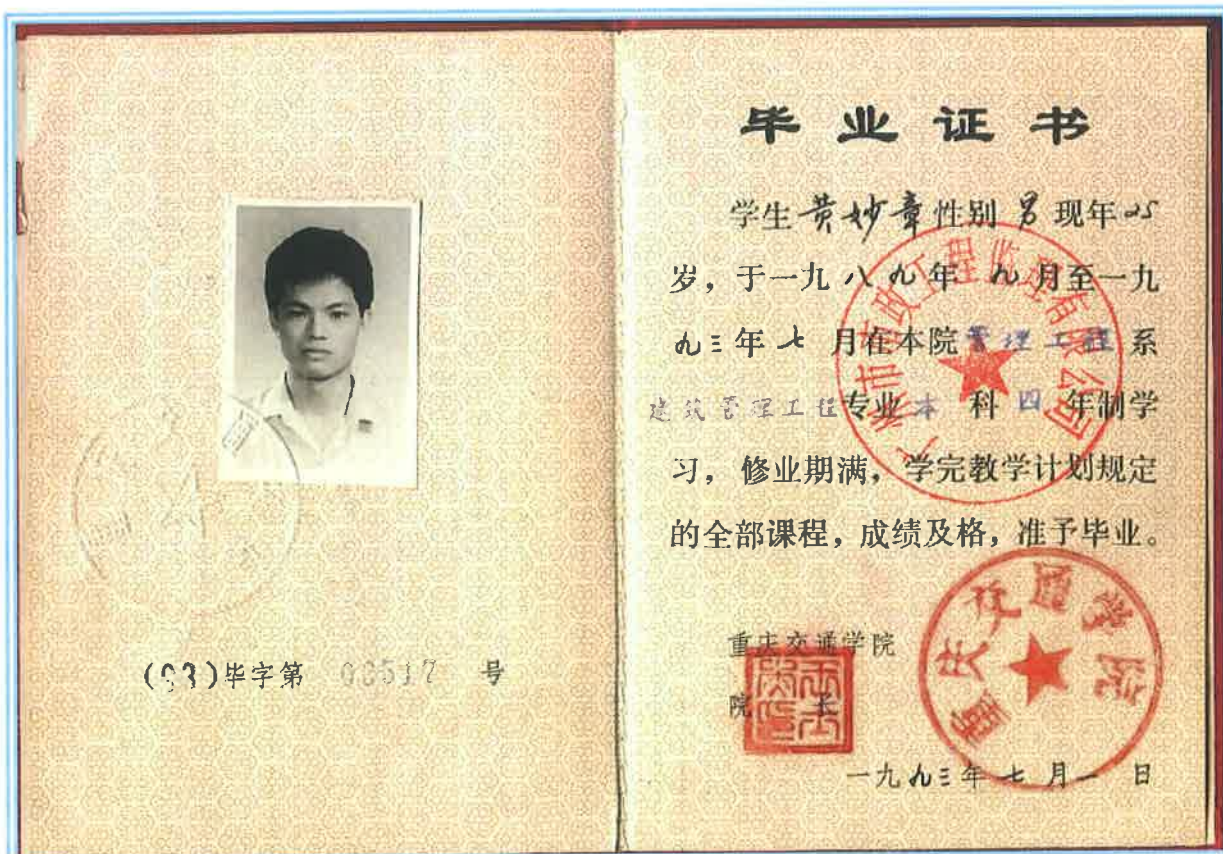 (93)毕字第 00517 号
毕业证书
学生黄妙章性别男现年25
岁，于一九八九年九月至一九
九三年七月在本院管理工程系
建筑管理工程专业本科四年制学
习，修业期满，学完教学计划规定
的全部课程，成绩及格，准予毕业。
广州市市政工程监理有限公司
重庆交通学院
院长
重庆交通学院
一九九三年七月一日